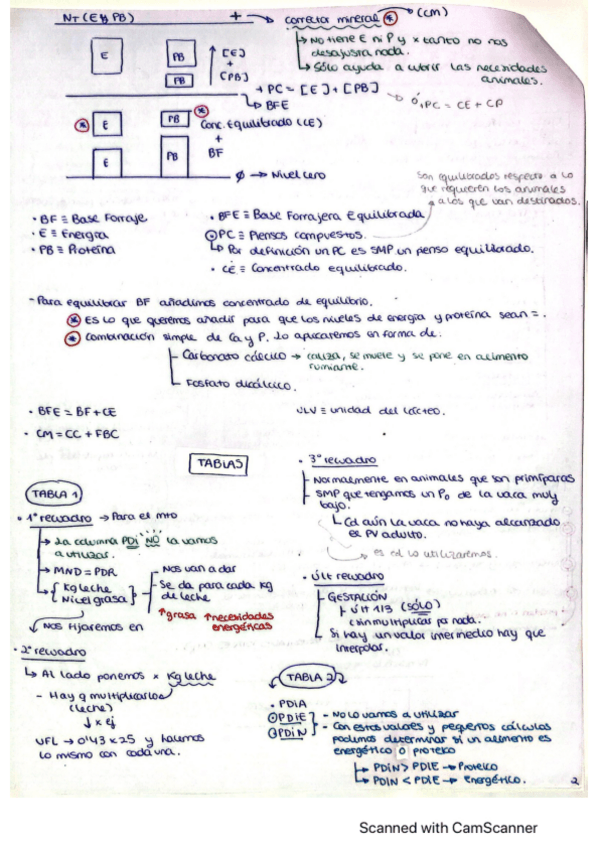 NT (E y PB) + → corrector mineral * (CM)
↳ No tiene E ni P y x tanto no nos desajusta nada.
↳ Sólo ayuda a cubrir las necesidades animales.
E PB ↑ [E] + [PB]
PB
+ PC = [E] + [PB]
ó, PC = CE + CP
↳ BFE
* E PB *
Conc. Equilibrado (CE)
+
E PB BF
∅ → Nivel cero
Son equilibrados respecto a lo que requieren los animales a los que van destinados.
· BF ≡ Base Forraje
· E ≡ Energía
· PB ≡ Proteína
· BFE ≡ Base Forrajera Equilibrada
PC ≡ Piensos compuestos.
↳ Por definición un PC es SMP un pienso equilibrado.
· CE ≡ Concentrado equilibrado.
- Para equilibrar BF añadimos concentrado de equilibrio.
* Es lo que queremos añadir para que los niveles de energía y proteína sean =.
* Combinación simple de Ca y P. Lo aplicaremos en forma de:
Carbonato cálcico → caliza, se muele y se pone en alimento rumiante.
Fosfato dicálcico.
· BFE = BF + CE
· CM = CC + FBC
ULV ≡ unidad del lácteo.
TABLAS
TABLA 1
· 1º recuadro → Para el mto
→ La columna PDI NO la vamos a utilizar.
→ MND = PDR
→ { Kg leche Nivel grasa }
Nos van a dar
Se da para cada kg de leche
↑grasa ↑necesidades energéticas
↙ Nos fijaremos en
· 2º recuadro
↳ Al lado ponemos x Kg leche
- Hay q multiplicarlos (leche)
↓ x ej
UFL → 0'43 x 25 y hacemos lo mismo con cada una.
· 3º recuadro
Normalmente en animales que son primíparas
SMP que tengamos un Po de la vaca muy bajo.
↳ Cd aún la vaca no haya alcanzado el PV adulto.
→ es cd lo utilizaremos.
· Últ recuadro
GESTACIÓN
↳ últ 1/3 (SÓLO)
(sin multiplicar por nada.
Si hay un valor intermedio hay que interpolar.
TABLA 2
· PDIA
PDIE
PDIN
- No lo vamos a utilizar
- Con estos valores y pequeños cálculos podemos determinar si un alimento es energético o proteico
↳ PDIN > PDIE → Proteico
↳ PDIN < PDIE → Energético.
2
Scanned with CamScanner